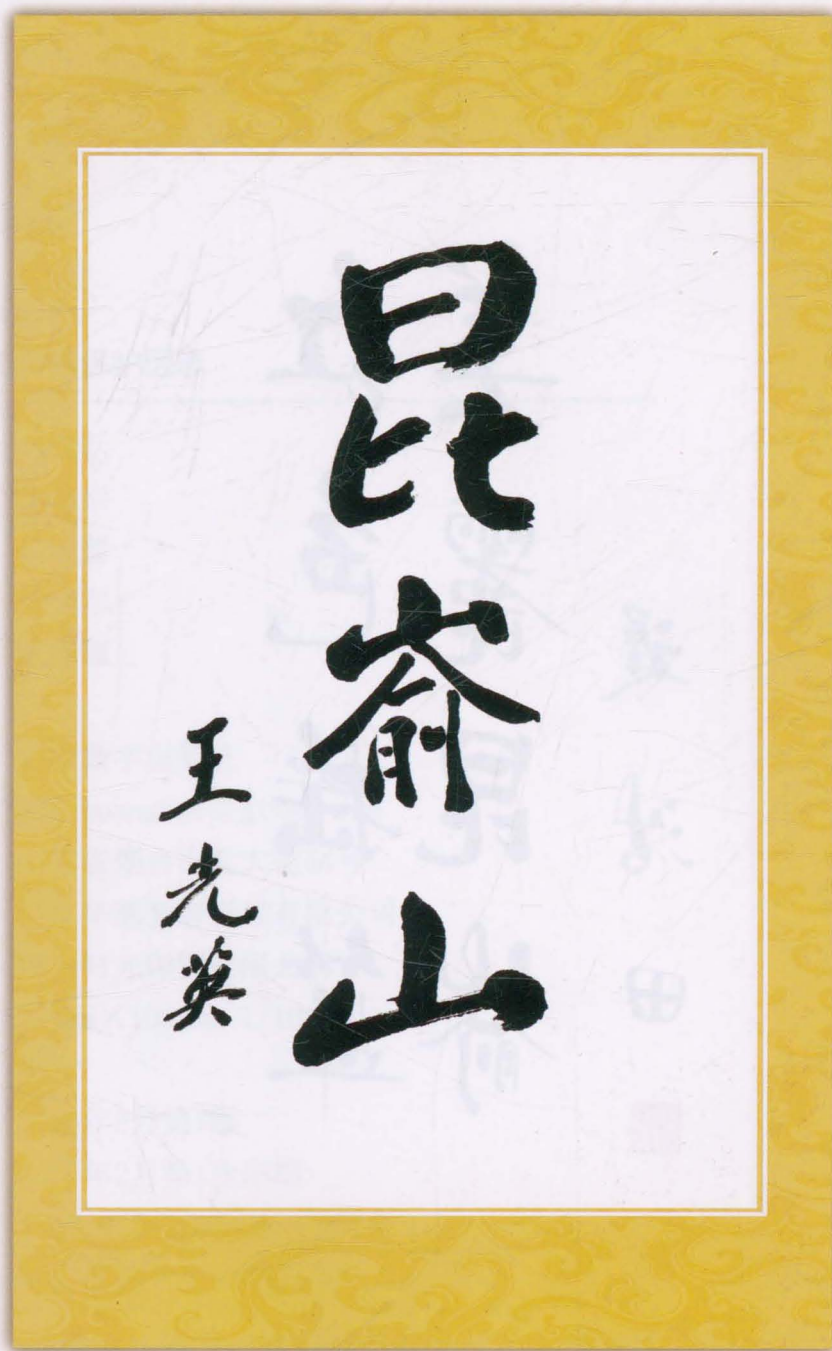 昆嵛山
王光英